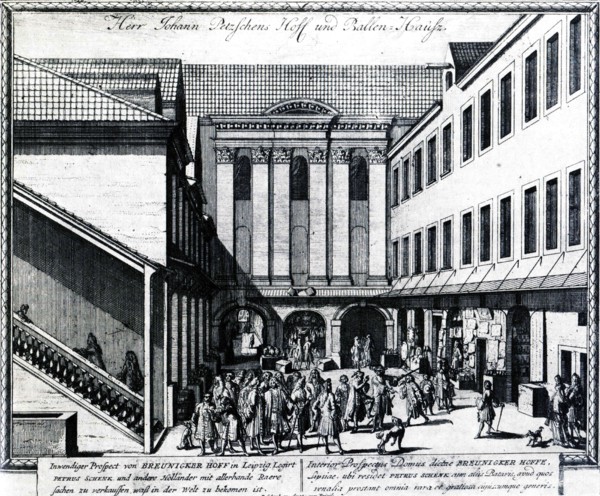 Herr Johann Petzschens Hoff und Ballen-Hausz.
Inwendiger Prospect von BREUNIGKER HOFF in Leipzig Logirt
PETRUS SCHENK und andere Holländer mit allerhande Waere
sachen zu verkauffen waß in der Welt zu bekomen ist.
Interior Prospectus Domus dictæ BREUNIGKER HOFFE,
Lipsiae, ubi residet PETRUS SCHENK cum aliis Batavis, apud quos
venalia prostant omnia rara et gratiosa cujuscunque generis.